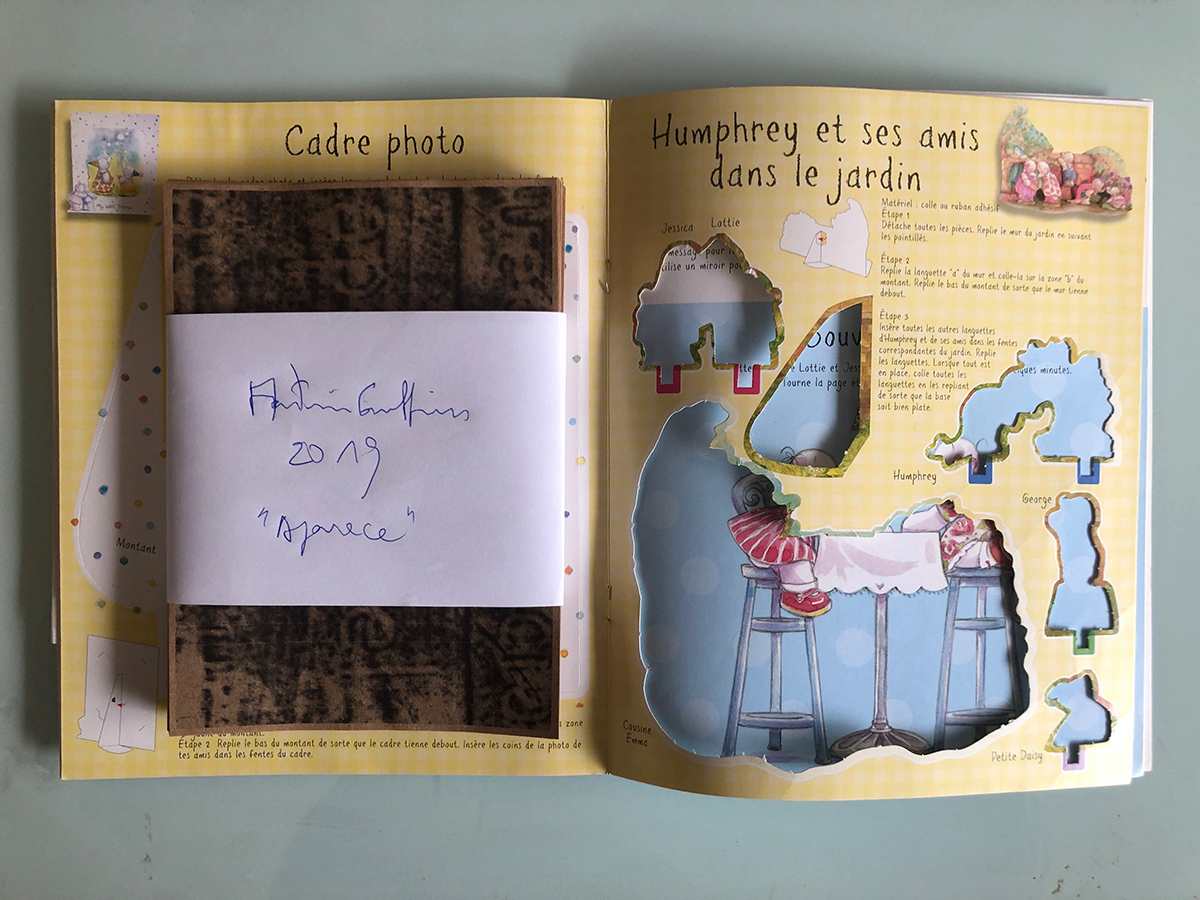 Cadre photo
2019
"Aparece"
Montant
zone
Étape 2 Replie le bas du montant de sorte que le cadre tienne debout. Insère les coins de la photo de
tes amis dans les fentes du cadre.
Humphrey et ses amis
dans le jardin
Matériel : colle ou ruban adhésif
Étape 1
Détache toutes les pièces. Replie le mur du jardin en suivant
les pointillés.
Étape 2
Replie la languette "a" du mur et colle-la sur la zone "b" du
montant. Replie le bas du montant de sorte que le mur tienne
debout.
Étape 3
Insère toutes les autres languettes
d'Humphrey et de ses amis dans les fentes
correspondantes du jardin. Replie
les languettes. Lorsque tout est
en place, colle toutes les
languettes en les repliant
de sorte que la base
soit bien plate.
Jessica Lottie
message pour
utilise un miroir
ouv
Lottie et Jess
tourne la page et
iques minutes.
Humphrey
George
Cousine
Emma
Petite Daisy